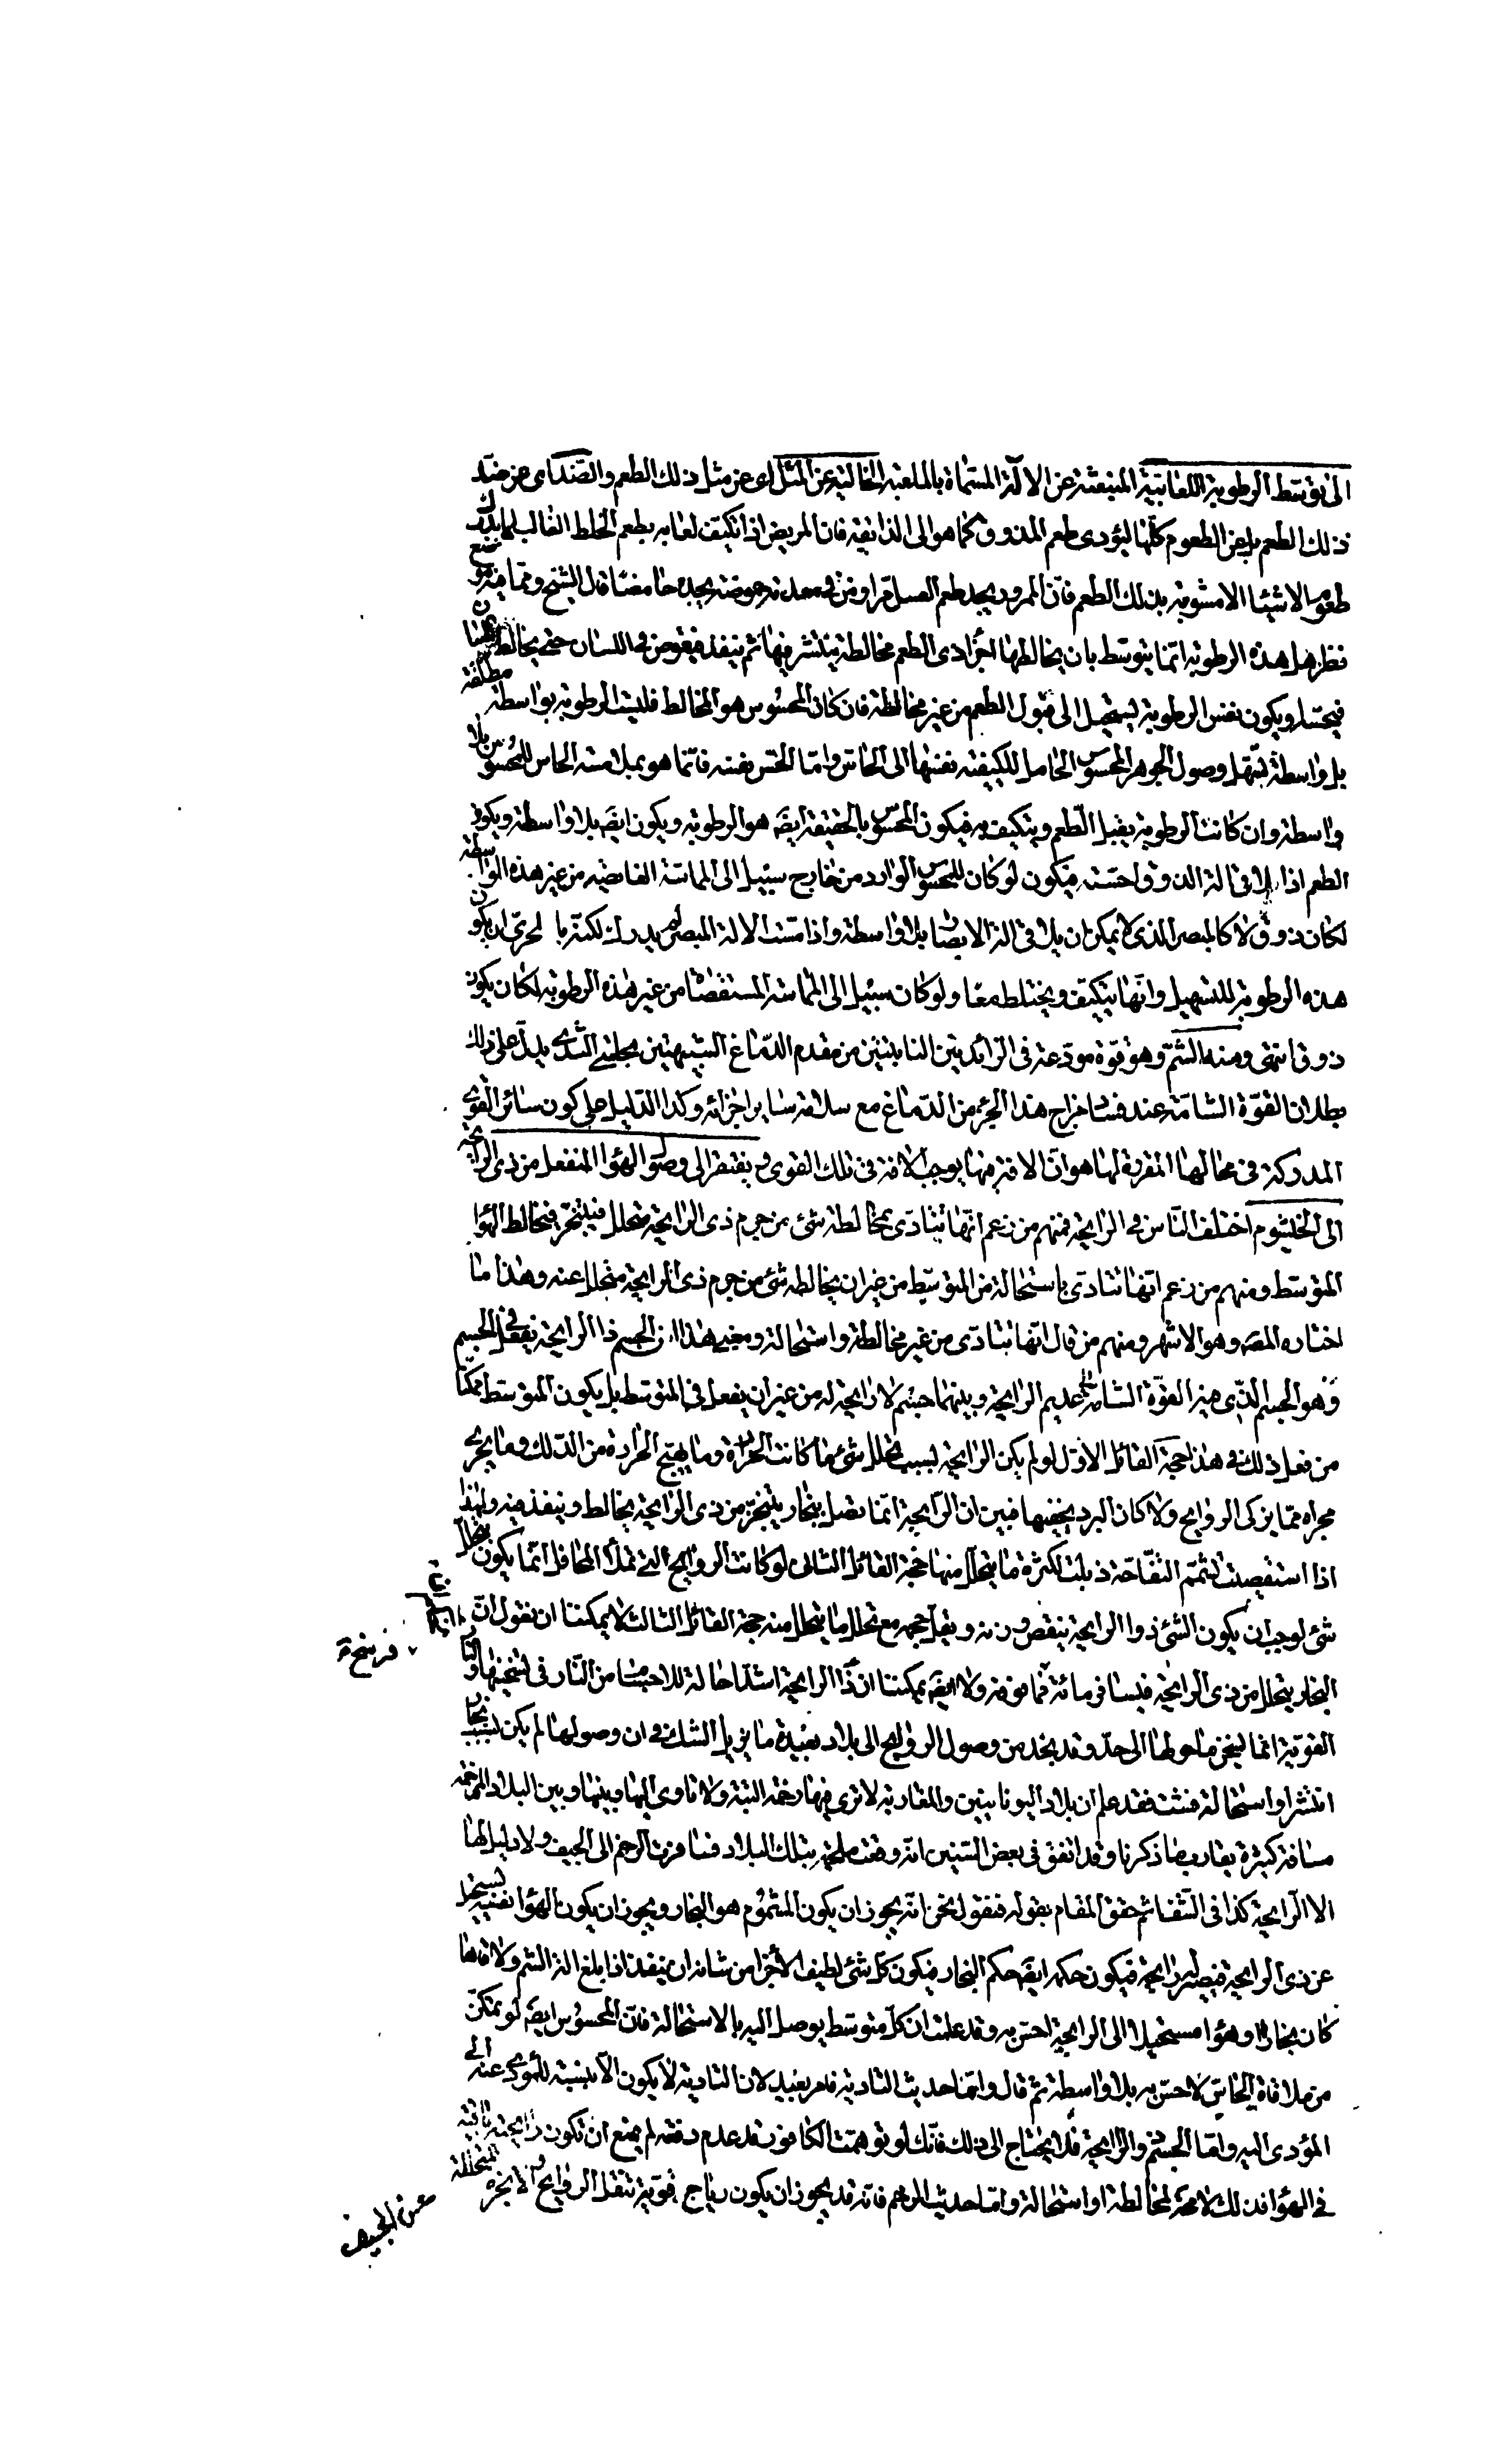 الى توسّط الرطوبة اللعابيّة المنبعثة عن الآلة المسمّاة بالملعبة الخالية عن المثل اى عن مثل ذلك الطعم والضد اى عن ضدّ
ذلك الطعم بل عن الطعوم كلّها ليؤدى طعم المذوق كما هو الى الذائقة فان المريض اذا تكيّف لعابه بطعم الخلط الغالب لم يدرك
طعوم الاشياء الا مشوبة بذلك الطعم فانّ الممرور يجد طعم العسل مرّا ومن فى معدته حموضة يجده حامضا قال الشيخ وممّا فيه موضع
نظر هل هذه الرطوبة انّما يتوسّط بان يخالطها اجزا ذى الطعم مخالطة ينتشر فيها ثم ينفذ فيغوص فى اللسان حتى يخالط اللسان
فيحسّه او يكون نفس الرطوبة يستحيل الى قبول الطعم من غير مخالطة فان كان المحسوس هو المخالط فليست الرطوبة بواسطة مطلقة
بل واسطة تسهّل وصول الجوهر المحسوس الحامل للكيفية نفسها الى الحاسّ وامّا الحسّ نفسه فانّما هو بملامسة الحاس للمحسوس بلا
واسطة وان كانت الرطوبة يقبل الطّعم ويتكيف به فيكون المحسوس بالحقيقة ايضَ هو الرطوبة ويكون ايضَ بلا واسطة ويكون
الطعم اذا لاقى الة الذوق احسّته فيكون لو كان للمحسوس الوارد من خارج سبيل الى المماسّة الغائصة من غير هذه الواسطة
لكان ذوق لا كالمبصر الذى لا يمكن ان يلاقى الة الابصار بلا واسطة واذا مسّت الالة المبصر لم يدرك لكنّه بالحرىّ ان يكون
هذه الرطوبة للتسهيل وانّها يتكيّف ويختلط معا ولو كان سبيل الى المماسة المستقصاة من غير هذه الرطوبة لكان يكون
ذوق انتهى ومنها الشمّ وهو قوّة مودعة فى الزائدتين النابتتين من مقدم الدّماغ الشبيهتين بحلمتى الثدى يدلّ على ذلك
بطلان القوّة الشامّة عند فساد مزاج هذا الجزء من الدّماغ مع سلامة ساير اجزائه وكذا الدّليل على كون سائر القوى
المدركة فى محالها المقربة لها هو انّ الافة فيها يوجب الافة فى تلك القوى ويفتقر الى وصول الهواء المنفعل من ذى الرايحة
الى الخيشوم اختلف النّاس فى الرايحة فمنهم من زعم انّها تتادّى بمخالطة شئ من جرم ذى الرايحة متحلل فيتبخر فيخالط الهوا
المتوسط ومنهم من زعم انّها تتادّى باستحالة من المتوسّط من غير ان يخالطه شئ من جرم ذى الرايحة متحلل عنه وهذا ما
اختاره المصَ وهو الاشهر ومنهم من قال انّها تتادّى من غير مخالطة واستحالة ومعنى هذا ان الجسم ذا الرايحة يفعل فى الجسم
وهو الجسم الذى فيه القوّة الشامّة عديم الرايحة وبينهما جسم لا رايحة له من غير ان يفعل فى المتوسط بل يكون المتوسّط ممكّنا
من فعل ذلك فى هذا حجّة القائل الاوّل لو لم يكن الرايحة بسبب تحلل شئ ما كانت الحرارة وما يهيّج الحرارة من الدّلك وما يجرى
مجراه ممّا يزكى الروايح ولا كان البرد يخفيها فبين ان الرّايحة انّما تصل ببخار يتبخّر من ذى الرّايحة يخالط وينفذ فيه ولهذا
اذا استقصيت تشمّم التفّاحة ذبلت لكثرة ما يتحلّل منها حجة القائل الثانى لو كانت الروايح التى تملأ المحافل انّما يكون بتحلّل
شئ لوجب ان يكون الشئ ذو الرايحة ينقص وزنه ويقلّ حجمه مع تحلل ما يتحلل منه حجة القائل الثالث لا يمكننا ان نقول انّ
البخار يتحلل من ذى الرايحة فيسافر مائة فما فوقه ولا ايضَ يمكننا ان ذا الرايحة اشدّ احالة للاجسام من النّار فى تسخينها والنّار
القويّة انّما يسخن ما حولها الى حدّ وقد نجد من وصول الروايح الى بلاد بعيدة ما يزيل الشك فى ان وصولها لم يكن بسبب بخار
انتشر او استحالة فشت فقد علم ان بلاد اليونانيين والمغاربه لا ترى فيها رخمه البتة ولا تاوى اليها وبينها وبين البلاد المرخمه
مسافة كبيرة يقارب ما ذكرنا وقد اتفق فى بعض السّنين انّه وقعت ملحمة بتلك البلاد فسافرت الرخم الى الجيف ولا دليل لها
الا الرّايحة كذا فى الشفا ثم حقق المقام بقوله فنقول نحن انّه يجوز ان يكون المشموم هو البخار ويجوز ان يكون الهوا نفسه يستحيل
عن ذى الرايحة فيصير له رايحة فيكون حكمه ايضَ حكم البخار فيكون كلّ شئ لطيف الاجزا من شانه ان ينفذ اذا بلغ الة الشم ولاقاها
كان بخارا او هوا مستحيلا الى الرايحة احسّ به وقد علمت ان كلّ متوسّط يوصل اليه بالاستحالة فانّ المحسوس ايضَ لو تمكّن
من ملاقاة الحاسّ لاحسّ به بلا واسطة ثمّ قال وامّا حديث التادية فامر بعيد لانّ التادية لا يكون الّا بنسبة للمؤدى عنه الى
المؤدى اليه وامّا الجسم ذو الرّايحة فلا يحتاج الى ذلك فانّك لو توهّمت الكافور قد عدم دفعة لم يمنع ان تكون رايحة باقية
فى الهوا فذلك لا محة لمخالطة او استحالة وامّا حديث الرخم فانّه قد يجوز ان يكون رياح قويّة تنقل الروايح والابخرة المتحللة
فرسخ
من الجيف